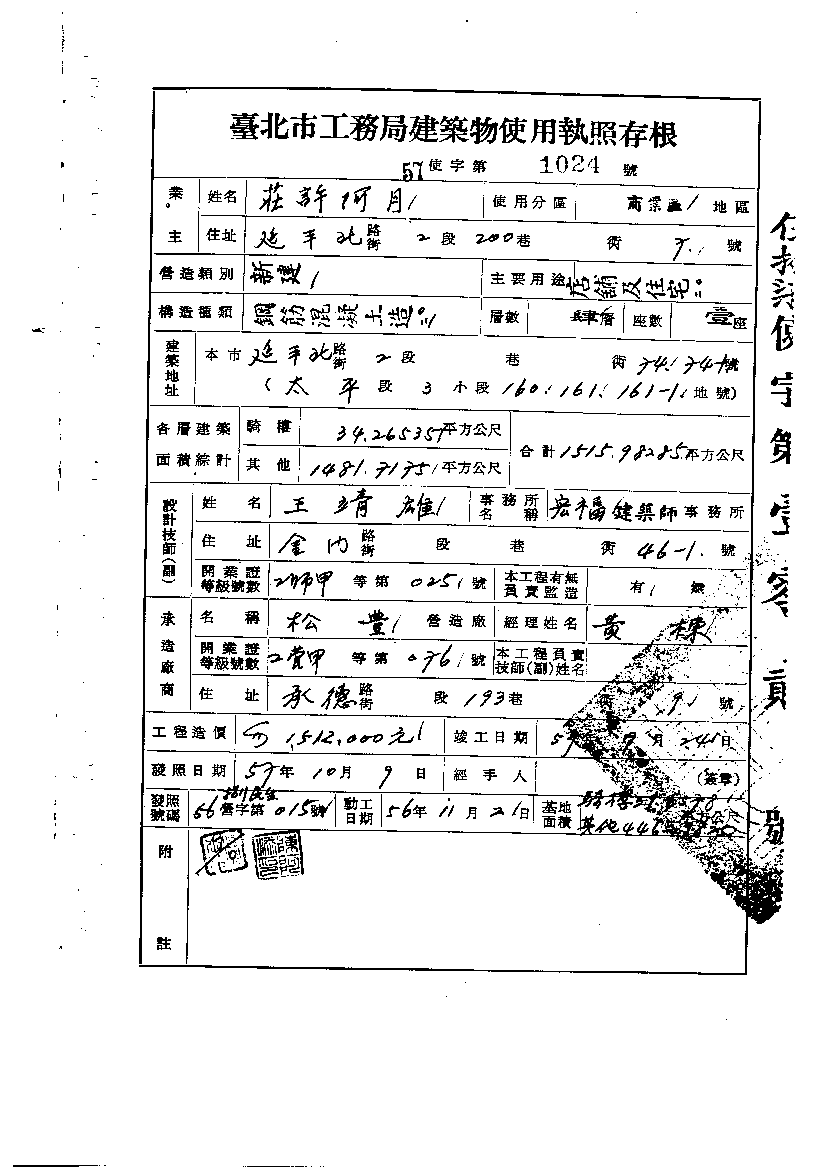 臺北市工務局建築物使用執照存根
57使字第 1024 號
業主 姓名 莊許何月 使用分區 商業區 地區
住址 延平北路街 2段 200巷 衖 號
營造類別 新建 主要用途 店舖及住宅
構造種類 鋼筋混凝土造 層數 肆層 座數 壹座
建築地址 本市 延平北路街 2段 巷 衖 號
(太平段 3小段 160.161.161-1 地號)
各層建築面積綜計 騎樓 34.26535平方公尺 合計 1515.98285平方公尺
其他 1481.7175平方公尺
設計技師(副) 姓名 王靖雄 事務所名稱 宏福建築師事務所
住址 金門路街 段 巷 衖 46-1 號
開業證等級號數 等第 025 號 本工程有無負責監造 有 無
承造廠商 名稱 松豐 營造廠 經理姓名 黃棟
開業證等級號數 等第 076 號 本工程負責技師(副)姓名
住址 承德路街 段 193巷 衖 9 號
工程造價 1,512,000元 竣工日期 57 9月 24日
發照日期 57年 10月 9日 經手人 (簽章)
發照號碼 56 營字第 015 號 動工日期 56年 11月 21日 基地面積 騎樓
其他
附註
使字第壹零貳 號